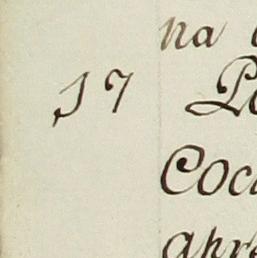 na
17 Pa
Coca
apre